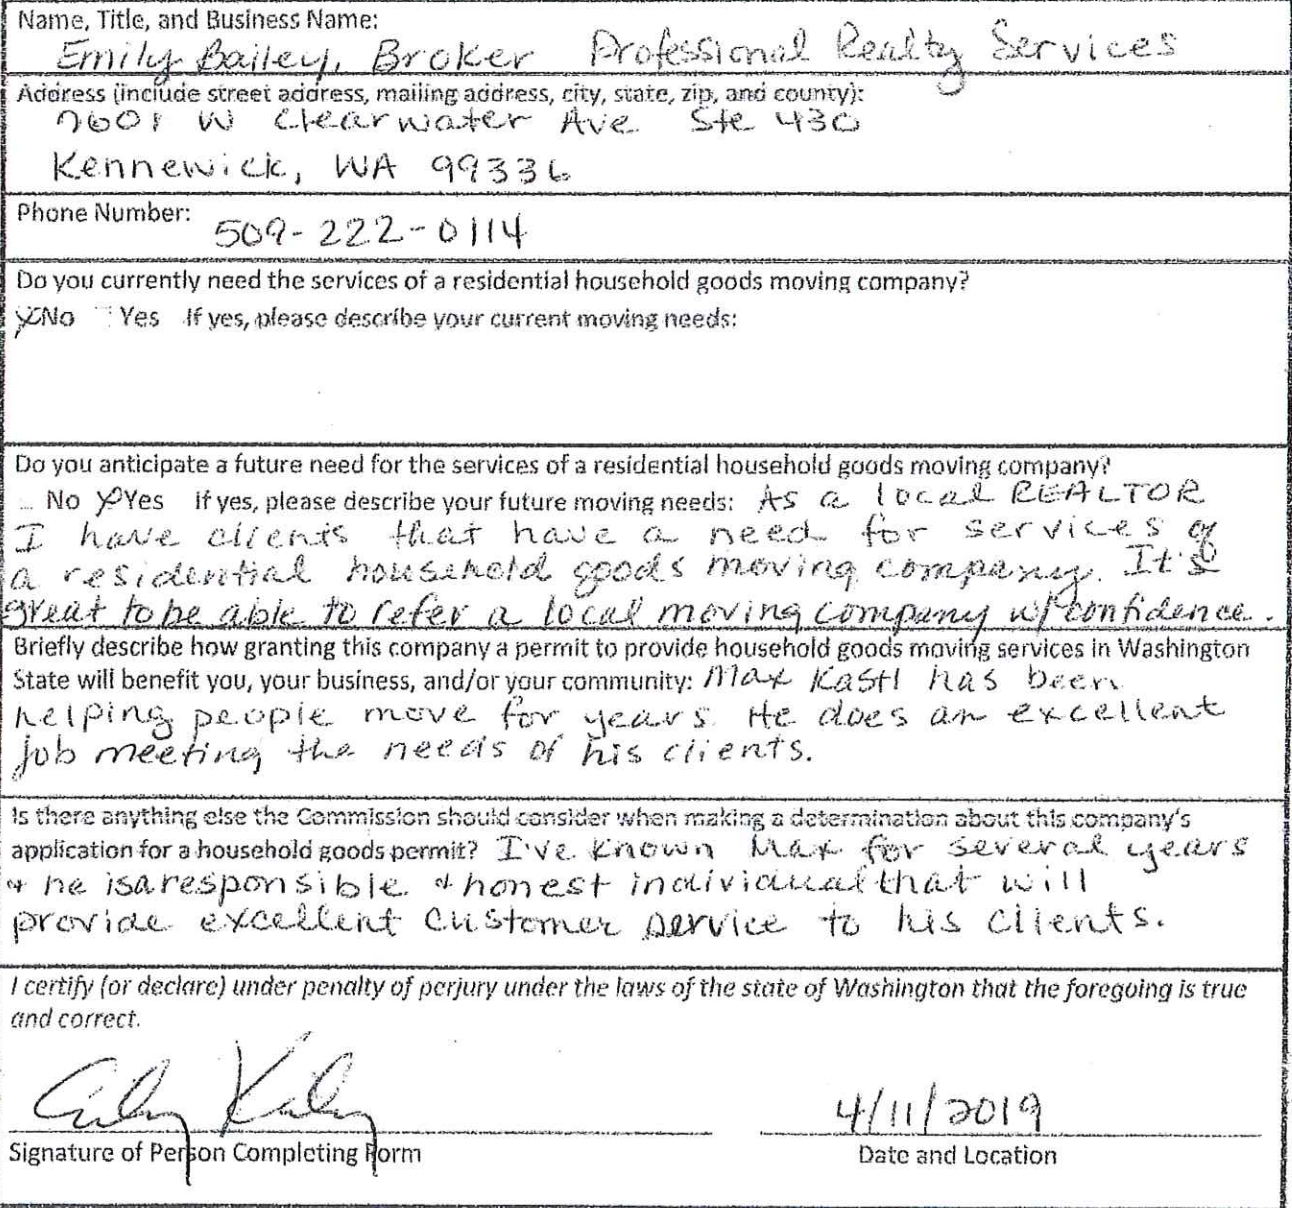 Name, Title, and Business Name:
Emily Bailey, Broker Professional Realty Services
Address (include street address, mailing address, city, state, zip, and county):
7601 W Clearwater Ave Ste 430
Kennewick, WA 99336
Phone Number: 509-222-0114
Do you currently need the services of a residential household goods moving company?
No Yes If yes, please describe your current moving needs:
Do you anticipate a future need for the services of a residential household goods moving company?
No Yes If yes, please describe your future moving needs: As a local REALTOR
I have clients that have a need for services of
a residential household goods moving company. It's
great to be able to refer a local moving company w/ confidence.
Briefly describe how granting this company a permit to provide household goods moving services in Washington
State will benefit you, your business, and/or your community: Max Kastl has been
helping people move for years. He does an excellent
job meeting the needs of his clients.
Is there anything else the Commission should consider when making a determination about this company's
application for a household goods permit? I've known Max for several years
& he is a responsible & honest individual that will
provide excellent customer service to his clients.
I certify (or declare) under penalty of perjury under the laws of the state of Washington that the foregoing is true
and correct.
4/11/2019
Signature of Person Completing Form Date and Location